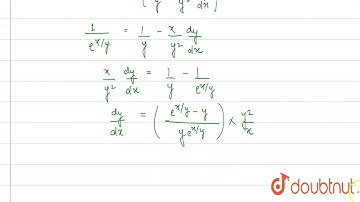 ( 1/y - x/y² dy/dx )
1/e^(x/y) = 1/y - x/y² dy/dx
x/y² dy/dx = 1/y - 1/e^(x/y)
dy/dx = ( (e^(x/y) - y) / (y e^(x/y)) ) × y²/x
doubtnut